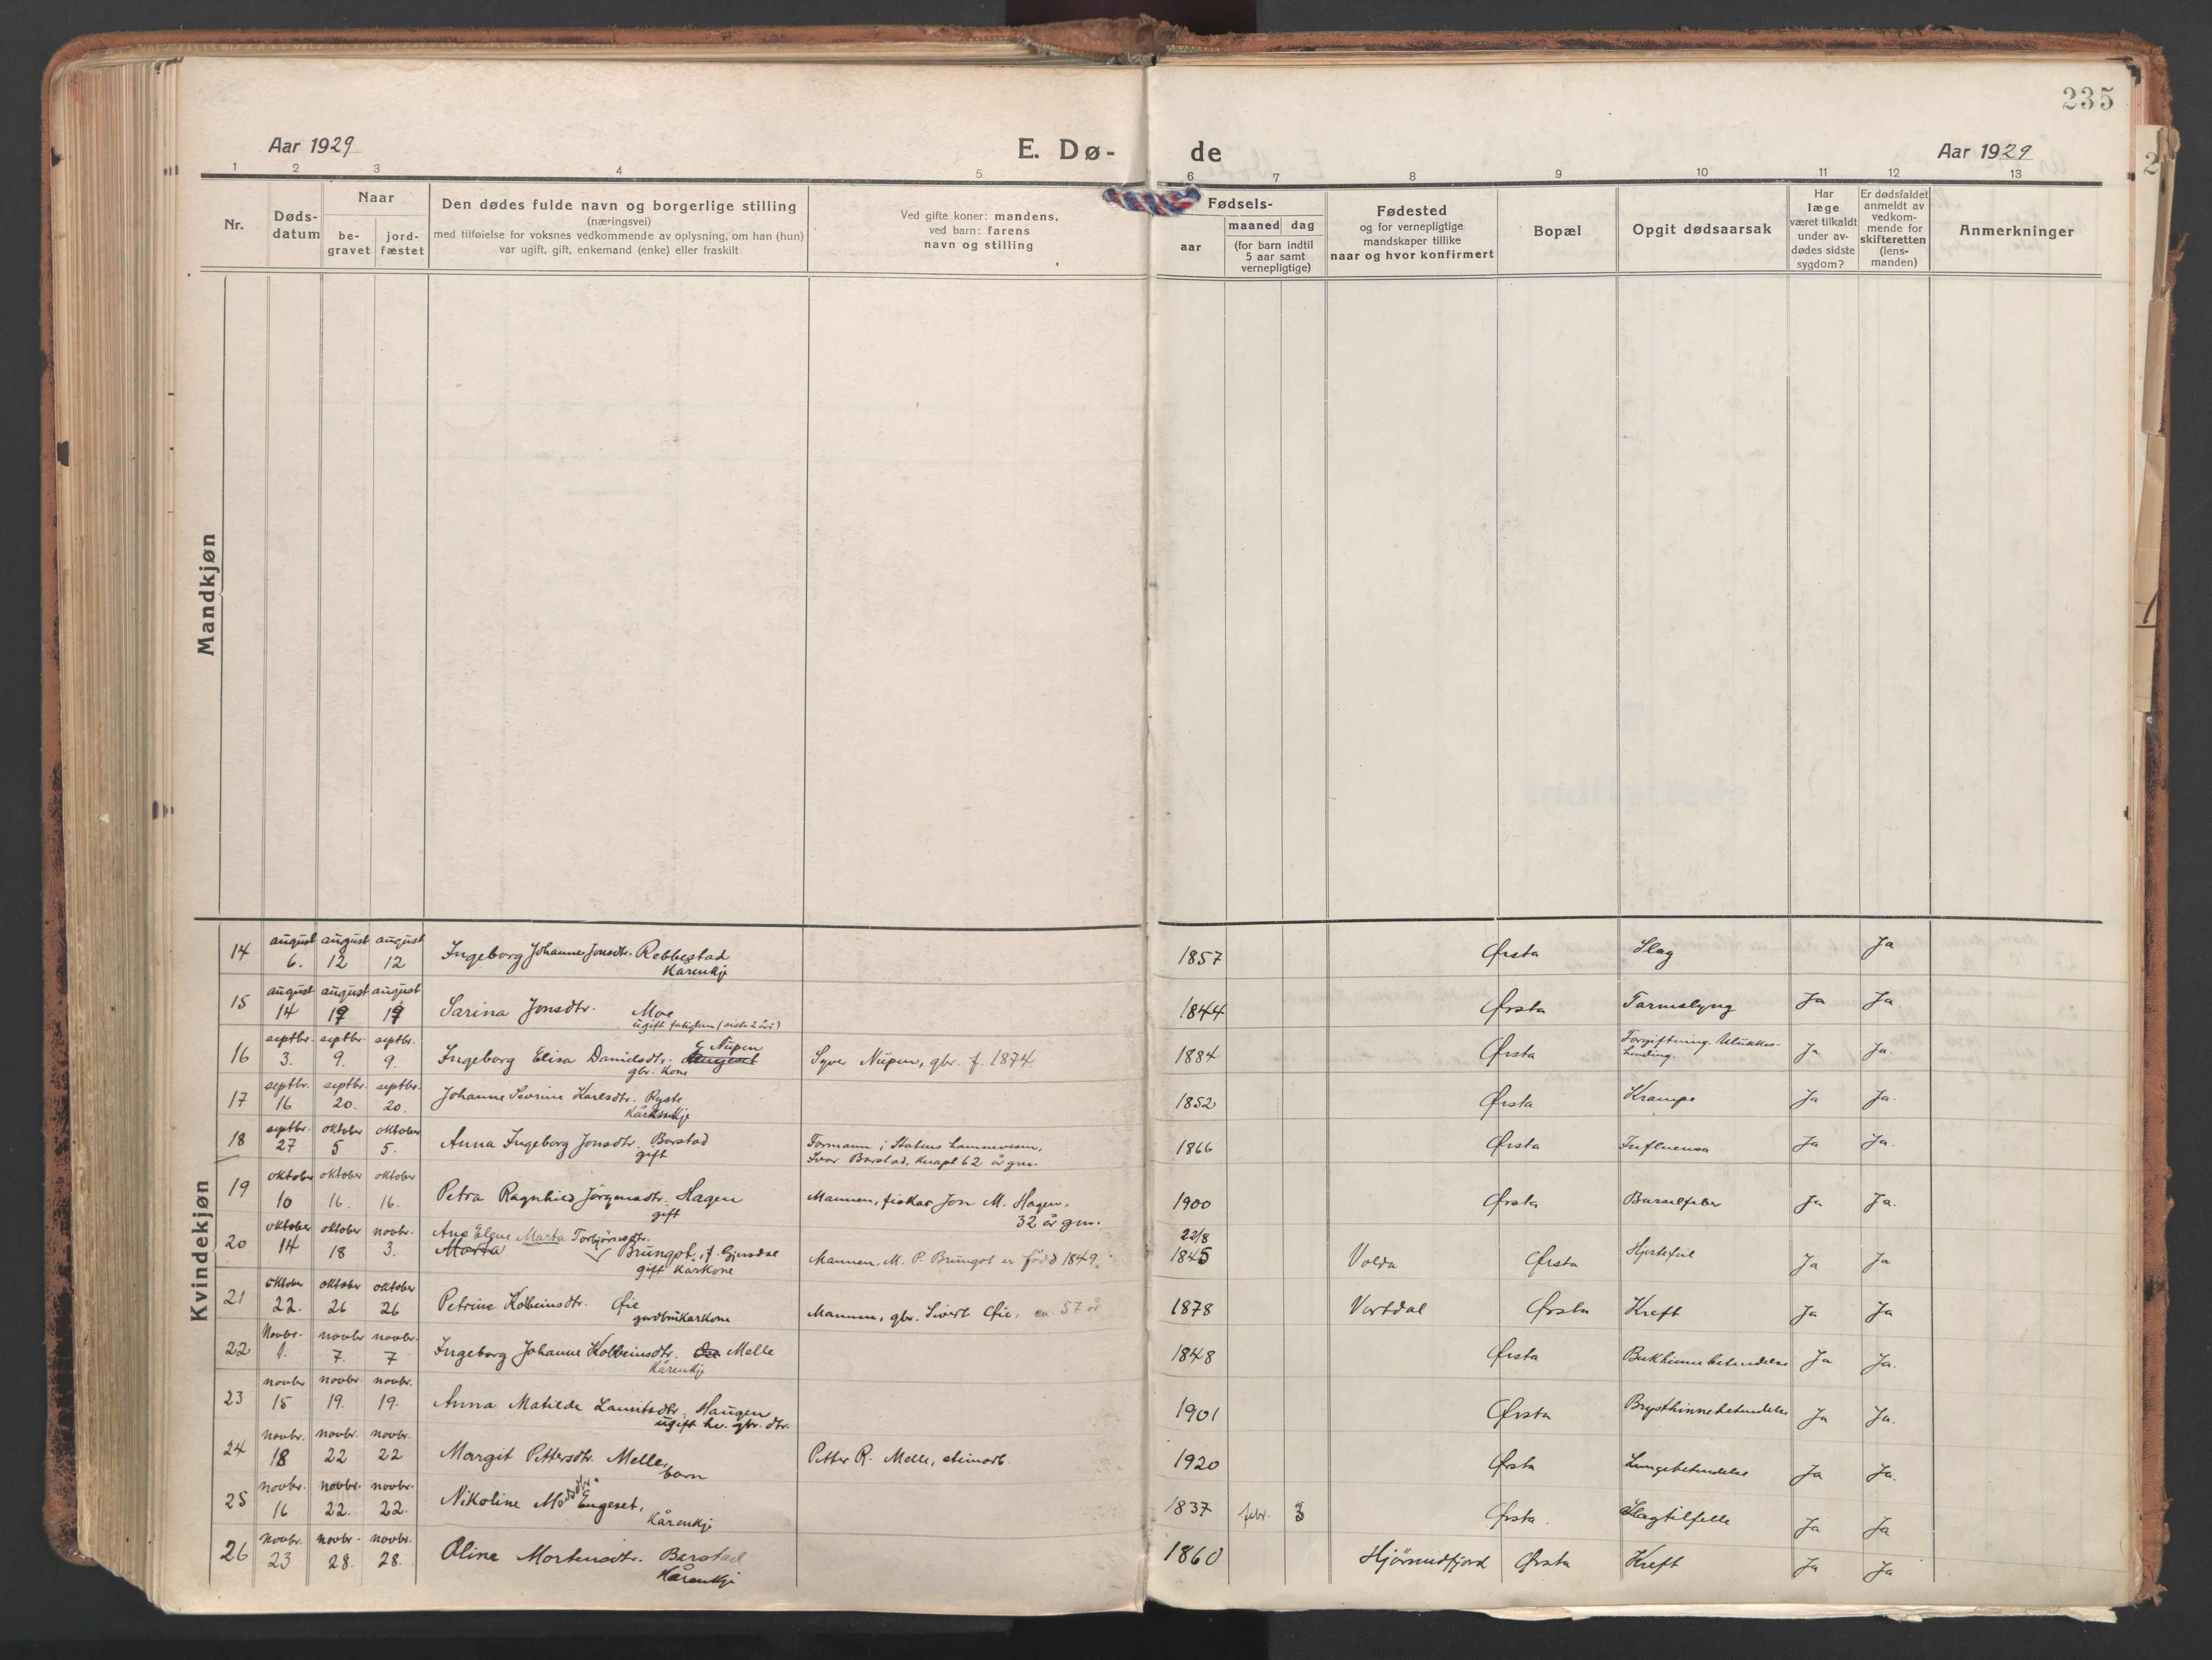 235
Aar 1929 E. Dø- de Aar 1929
1 2 3 4 5 6 7 8 9 10 11 12 13
Nr.
Døds-
datum
Naar
be-
gravet
jord-
fæstet
Den dødes fulde navn og borgerlige stilling
(næringsvei)
med tilføielse for voksnes vedkommende av oplysning, om han (hun)
var ugift, gift, enkemand (enke) eller fraskilt
Ved gifte koner: mandens,
ved barn: farens
navn og stilling
Fødsels-
aar
maaned dag
(for barn indtil
5 aar samt
vernepligtige)
Fødested
og for vernepligtige
mandskaper tillike
naar og hvor konfirmert
Bopæl
Opgit dødsaarsak
Har
læge
været tilkaldt
under av-
dødes sidste
sygdom?
Er dødsfaldet
anmeldt av
vedkom-
mende for
skifteretten
(lens-
manden)
Anmerkninger
Mandkjøn
Kvindekjøn
14 august 6. august 12 august 12 Ingeborg Johanne Jonsdtr. Rebbestad 1857 Ørsta Slag Ja
Kårenkje
15 august 14 august 19 august 19 Sarina Jonsdtr. Moe 1844 Ørsta Tarmslyng Ja Ja
ugift
16 septbr. 3. septbr. 9. septbr. 9. Ingeborg Elisa Danielsdtr. Nupen Syver Nupen, gbr. f. 1874. 1884 Ørsta Forgiftning. Ulukkes- Ja Ja.
gbr. kone hending.
17 septbr. 16 septbr. 20. septbr. 20. Johanne Sevrine Karlsdtr. Ryste 1852 Ørsta Krampe Ja Ja.
Kårenkje
18 septbr. 27 oktober 5 oktober 5. Anna Ingeborg Jonsdtr. Barstad Formann i Statens hamnevesen, 1866 Ørsta Influensa Ja Ja.
gift Ivar Barstad, knapt 62 år gm.
19 oktober 10 oktober 16. oktober 16. Petra Ragnhild Jörgensdtr. Hagen Mannen, fiskar Jon M. Hagen, 1900 Ørsta Barselfeber Ja Ja.
gift 32 år gm.
20 oktober 14 oktober 18 novbr. 3. Ane Elene Marta Torbjörnsdtr. 22/8
Marta Brungot, f. Gjersdal Mannen, M. P. Brungot er född 1849. 1845 Volda Ørsta Hjertefeil Ja Ja
gift kårkone
21 oktober 22. oktober 26 oktober 26 Petrine Kolbeinsdtr. Øie Mannen, gbr. Sivert Øie, ca 57 år 1878 Vartdal Ørsta Kreft Ja Ja
gardbrukarkone
22 Novbr. 1. novbr 7. novbr. 7 Ingeborg Johanne Kolbeinsdtr. Melle 1848 Ørsta Bukhinnebetendelse Ja Ja.
Kårenkje
23 novbr 15 novbr. 19. novbr. 19. Anna Matilde Lauritsdtr. Haugen 1901 Ørsta Brysthinnebetendelse Ja Ja.
ugift hv. gbr. dtr.
24 novbr. 18 novbr. 22 novbr. 22 Margit Pettersdtr. Melle, Petter R. Melle, steinarb. 1920 Ørsta Lungebetendelse Ja Ja.
barn
25 novbr. 16 novbr. 22. novbr. 22. Nikoline Madsdtr. Engeset, 1837 febr. 3 Ørsta. Slagtilfelle Ja Ja
Kårenkje
26 novbr. 23 novbr. 28. novbr. 28. Oline Mortensdtr. Barstad 1860 Hjörundfjord Ørsta Kreft Ja Ja
Kårenkje